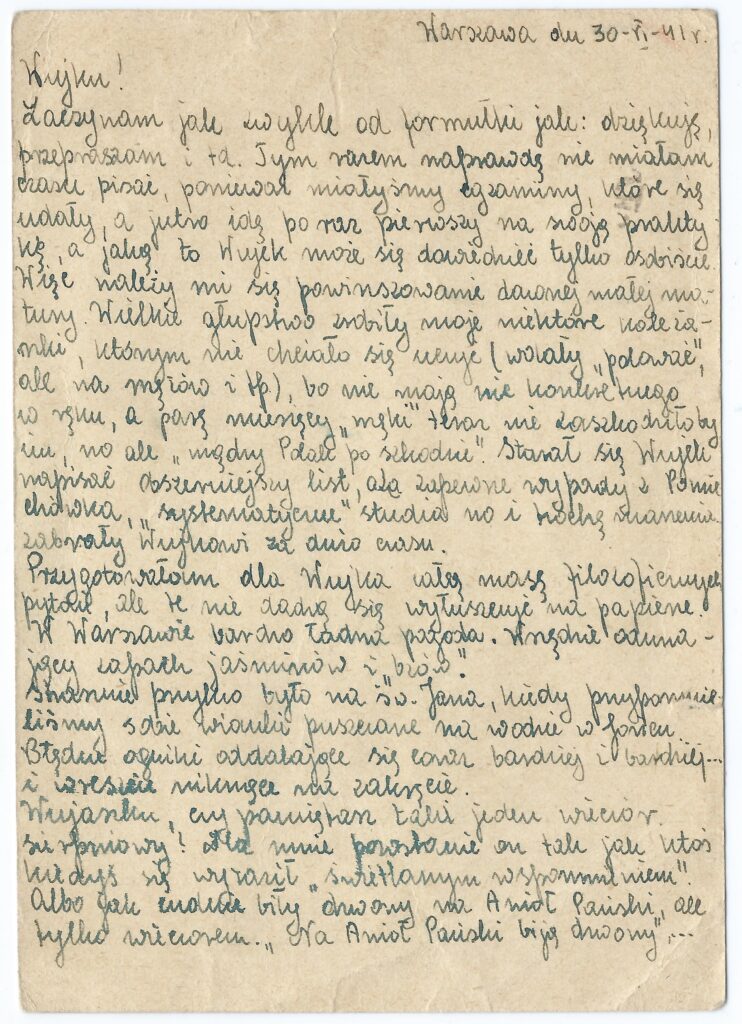 Warszawa dn 30-VI-41 r.
Wujku!
Zaczynam jak zwykle od formułki jak: dziękuję,
przepraszam i td. Tym razem naprawdę nie miałam
czasu pisać, ponieważ miałyśmy egzaminy, które się
udały, a jutro idę po raz pierwszy na swoją prakty-
kę, a jaką to Wujek może się dowiedzieć tylko osobiście.
Więc należy mi się powinszowanie dawnej małej ma-
tury. Wielkie głupstwo zrobiły moje niektóre koleża-
nki, którym nie chciało się uczyć (wolały
ale na mężów i tp), bo nie mają nic konkretnego
w ręku, a parę miesięcy „męki" teraz nie zaszkodziłoby
im, no ale „mądry Polak po szkodzie". Starał się Wujek
napisać obszerniejszy list, ale zapewne wypady z Pomie
chówka, „systematyczne" studia no i trochę
zabrały Wujkowi za dużo czasu.
Przygotowałam dla Wujka całą masę filozoficznych
pytań, ale te nie dadzą się wyłuszczyć na papierze.
W Warszawie bardzo ładna pogoda. Wszędzie odurza-
jący zapach jaśminów i „bzów".
Strasznie przykro było na Św. Jana, kiedy przypomnie-
liśmy sobie wianki puszczane na wodzie w
Błędne ogniki oddalające się coraz bardziej i bardziej...
i wreszcie niknące na zakręcie.
Wujaszku, czy pamiętasz taki jeden wieczór
sierpniowy? Dla mnie pozostanie on tak jak ktoś
kiedyś się wyraził „świetlanym wspomnieniem".
Albo jak cudnie biły dzwony na Anioł Pański, ale
tylko wieczorem. „Na Anioł Pański biją dzwony"...